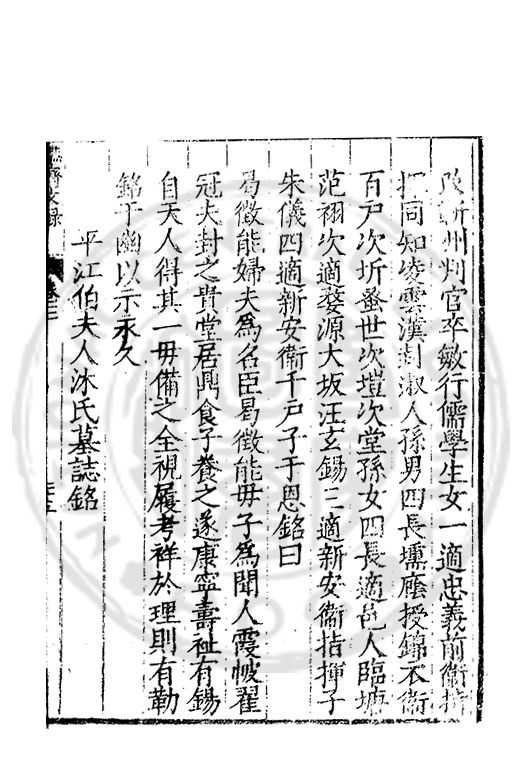 改蘄州判官卒敏行儒學生女一適忠義前衛指
揮同知凌雲漢封淑人孫男四長壎廕授錦衣衛
百戶次圻蚤世次塏次堂孫女四長適邑人臨塘
范栩次適婺源大坂汪玄錫三適新安衛指揮子
朱儀四適新安衛千戶子于恩銘曰
曷徵能婦夫為名臣曷徵能母子為聞人霞帔翟
冠夫封之貴堂居鼎食子養之遂康寧壽祉有錫
自天人得其一毋備之全視履考祥於理則有勒
銘于幽以示永久
平江伯夫人沐氏墓誌銘
文錄